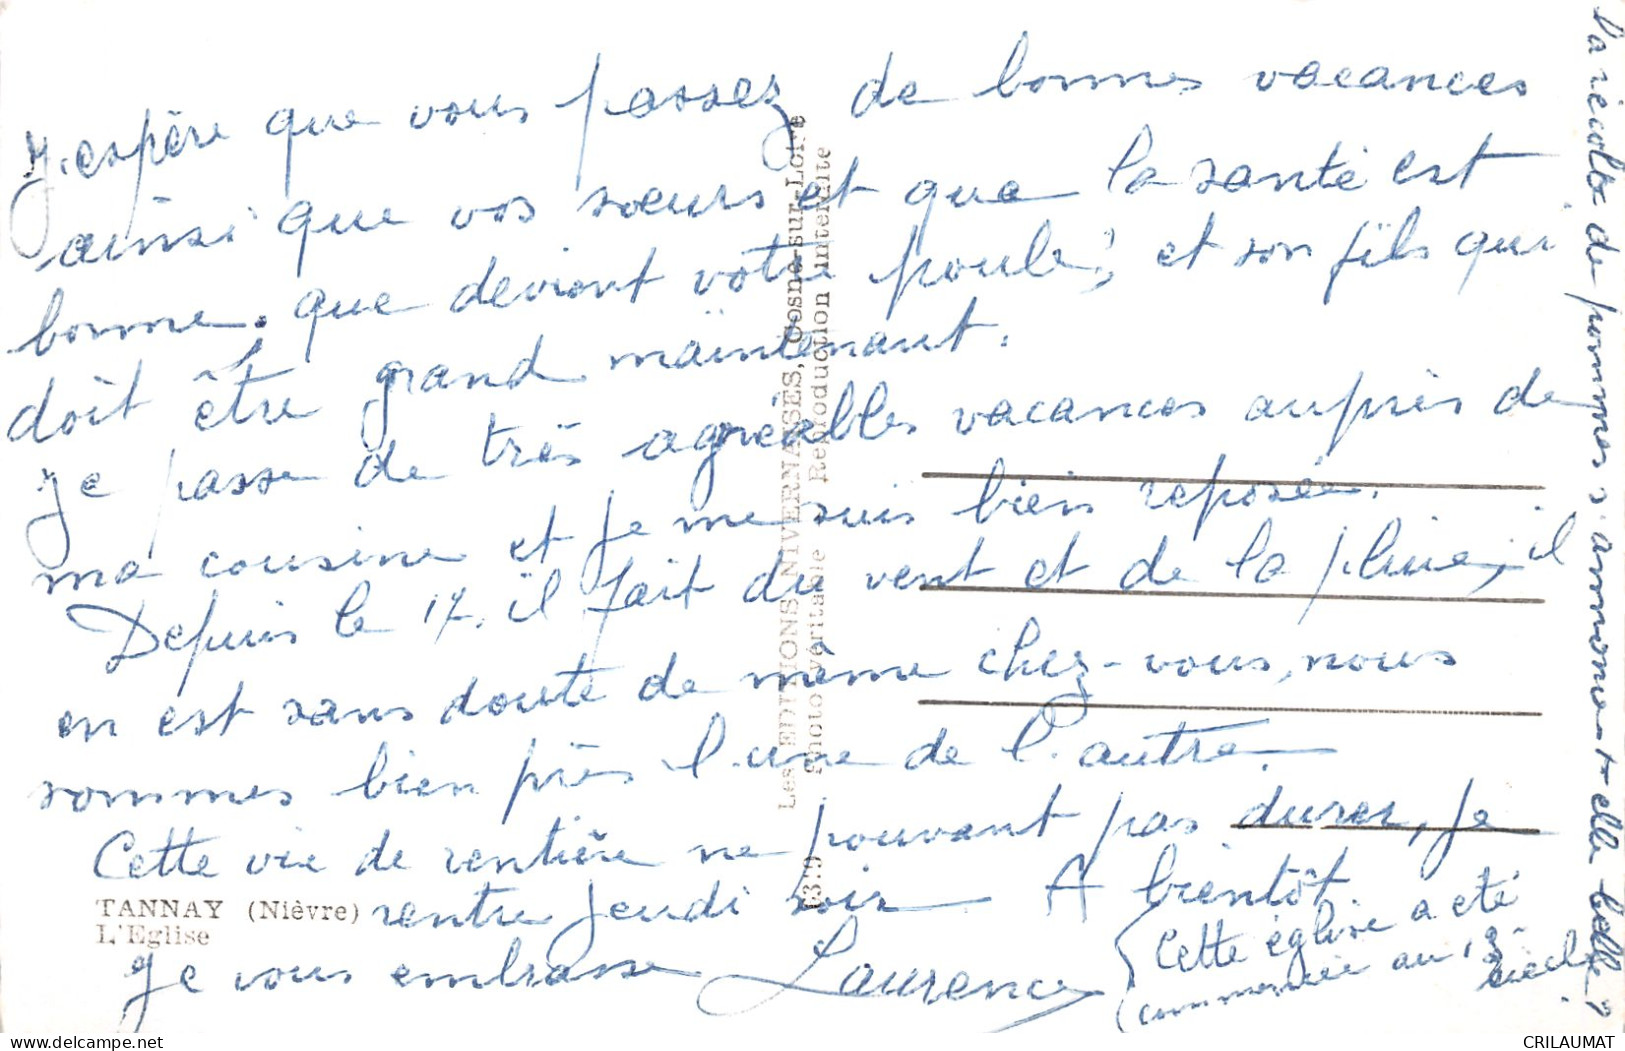 J'espère que vous passez de bonnes vacances
ainsi que vos sœurs et que la santé est
bonne. que devient votre poule ? et son fils qui
doit être grand maintenant.
Je passe de très agréables vacances auprès de
ma cousine et je me suis bien reposée.
Depuis le 17. il fait du vent et de la pluie, il
en est sans doute de même chez-vous, nous
sommes bien près l'une de l'autre.
Cette vie de rentière ne pouvant pas durer, je
rentre jeudi soir A bientôt
Je vous embrasse Laurence
Cette église a été
commencée au 13e
siècle
la récolte de pommes s'annonce-t-elle belle ?
TANNAY (Nièvre)
L'Eglise
Les EDITIONS NIVERNAISES, Cosne-sur-Loire
Photo véritable Reproduction interdite
CRILAUMAT